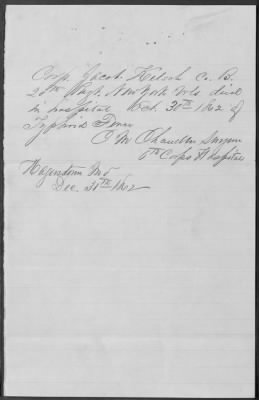 Corp. Jacob Co. B.
20th Regt. New York Vols died
in hospital Oct. 30th 1862 of
Typhoid Fever
O M Chandler Surgeon
6th Corps Hospital
Hagerstown Md
Dec. 31st 1862